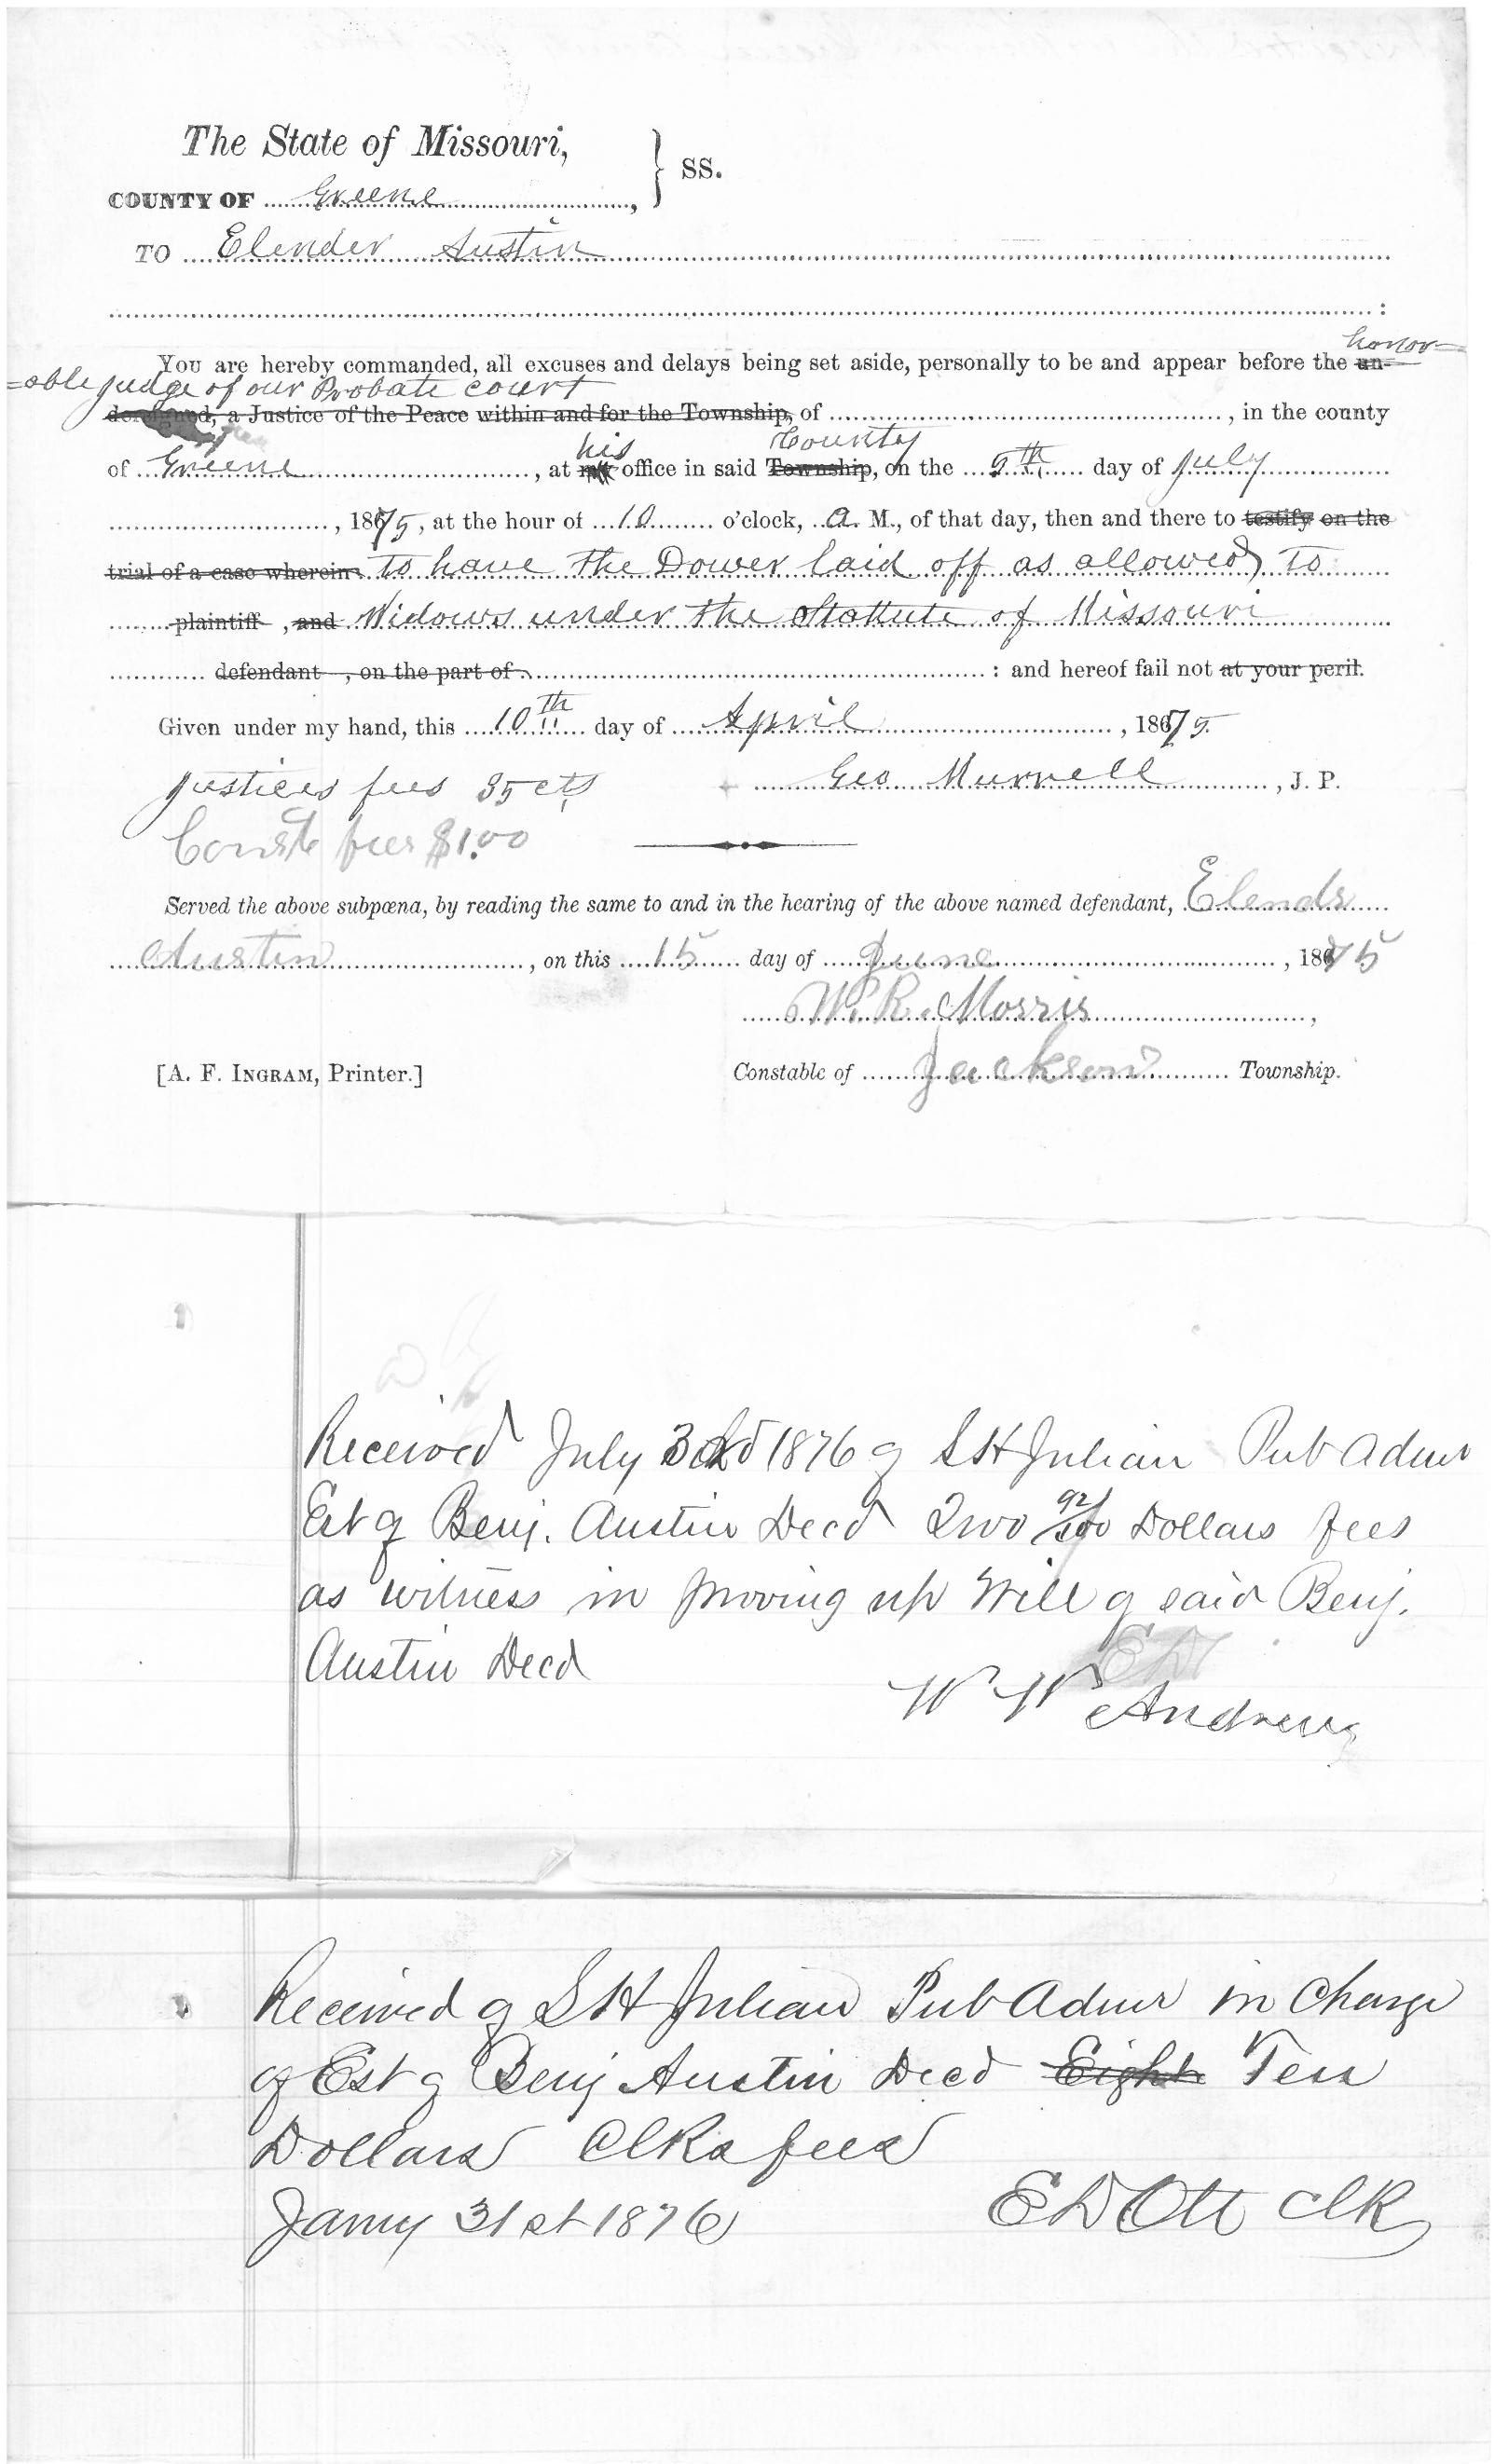 The State of Missouri,
COUNTY OF Greene, } SS.
TO Elender Austin
:
honor=
You are hereby commanded, all excuses and delays being set aside, personally to be and appear before the un-
=able judge of our Probate court
dersigned, a Justice of the Peace within and for the Township, of , in the county
his County
of Greene, at office in said Township, on the 5th day of July
, 1875, at the hour of 10 o'clock, a. M., of that day, then and there to testify on the
trial of a case wherein to have the Dower laid off as allowed to
plaintiff , and Widows under the Statute of Missouri
defendant , on the part of : and hereof fail not at your peril.
Given under my hand, this 10th day of April, 1875
Justices fees 35 cts Geo Murrell, J. P.
Const fees $1.00
Served the above subpœna, by reading the same to and in the hearing of the above named defendant, Elendr
Austin, on this 15 day of June, 1875
W. R. Morris,
[A. F. INGRAM, Printer.] Constable of Jackson Township.
Received July 1876 of S H Julian Pub Admr
Est of Benj. Austin Decd Two 92/100 Dollars fees
as witness in proving up Will of said Benj.
Austin Decd
W W Andrews
Received of S H Julian Pub Admr in Charge
of Est of Benj Austin Decd Eight Ten
Dollars Clks fees
Jany 31st 1876 E D Ott Clk